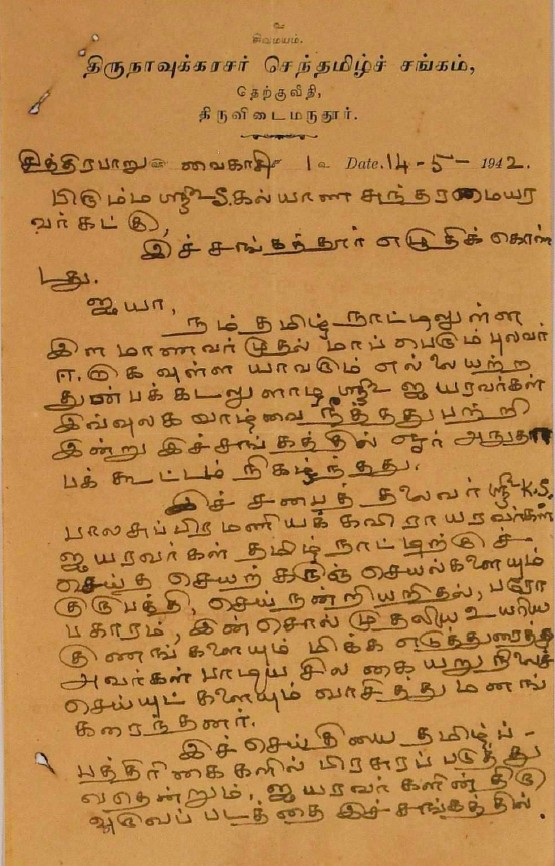 உ
சிவமயம்.
திருநாவுக்கரசர் செந்தமிழ்ச் சங்கம்,
தெற்குவீதி,
திருவிடைமருதூர்.
சித்திரபானு வைகாசி 1 Date. 14-5-1942.
பிரும்ம ஸ்ரீ S. கல்யாண சுந்தரமையர
வர்கட்கு,
இச் சங்கத்தார் எழுதிக் கொண்
டது.
ஐயா,
நம் தமிழ் நாட்டிலுள்ள
இள மாணவர் முதல் மாப் பெரும் புலவர்
ஈ. றாக வுள்ள யாவரும் எல் லையற்ற
துன்பக் கடலுளாழ ஸ்ரீ ஐ யரவர்கள்
இவ்வுலக வாழ்வை நீத்தது பற்றி
இன்று இச் சங்கத்தில் ஓர் அநுதா
பக் கூட்டம் நிகழ்ந்தது.
இச் சபைத் தலைவர் ஸ்ரீ K.S.
பாலசுப்பிரமணியக் கவிராயரவர்கள்
ஐயரவர்கள் தமிழ் நாட்டிற்குச்
செய்த செயற் கருஞ் செயல்களையும்
குருபத்தி, செய் நன்றியறிதல், பரோ
பகாரம், இன்சொல் முதலிய உயரிய
குணங் களையும் மிக்க எடுத்துரைத்து
அவர்கள் பாடிய சில கை யறு நிலைச்
செய்யுட் களையும் வாசித்து மனங்
கரைந்தனர்.
இச் செய்தியை தமிழ்ப் -
பத்திரிகை களில் பிரசுரப் படுத்து
வதென்றும், ஐயரவர் களின் திரு
வுருவப் படத்தை இச் சங்கத்தில்